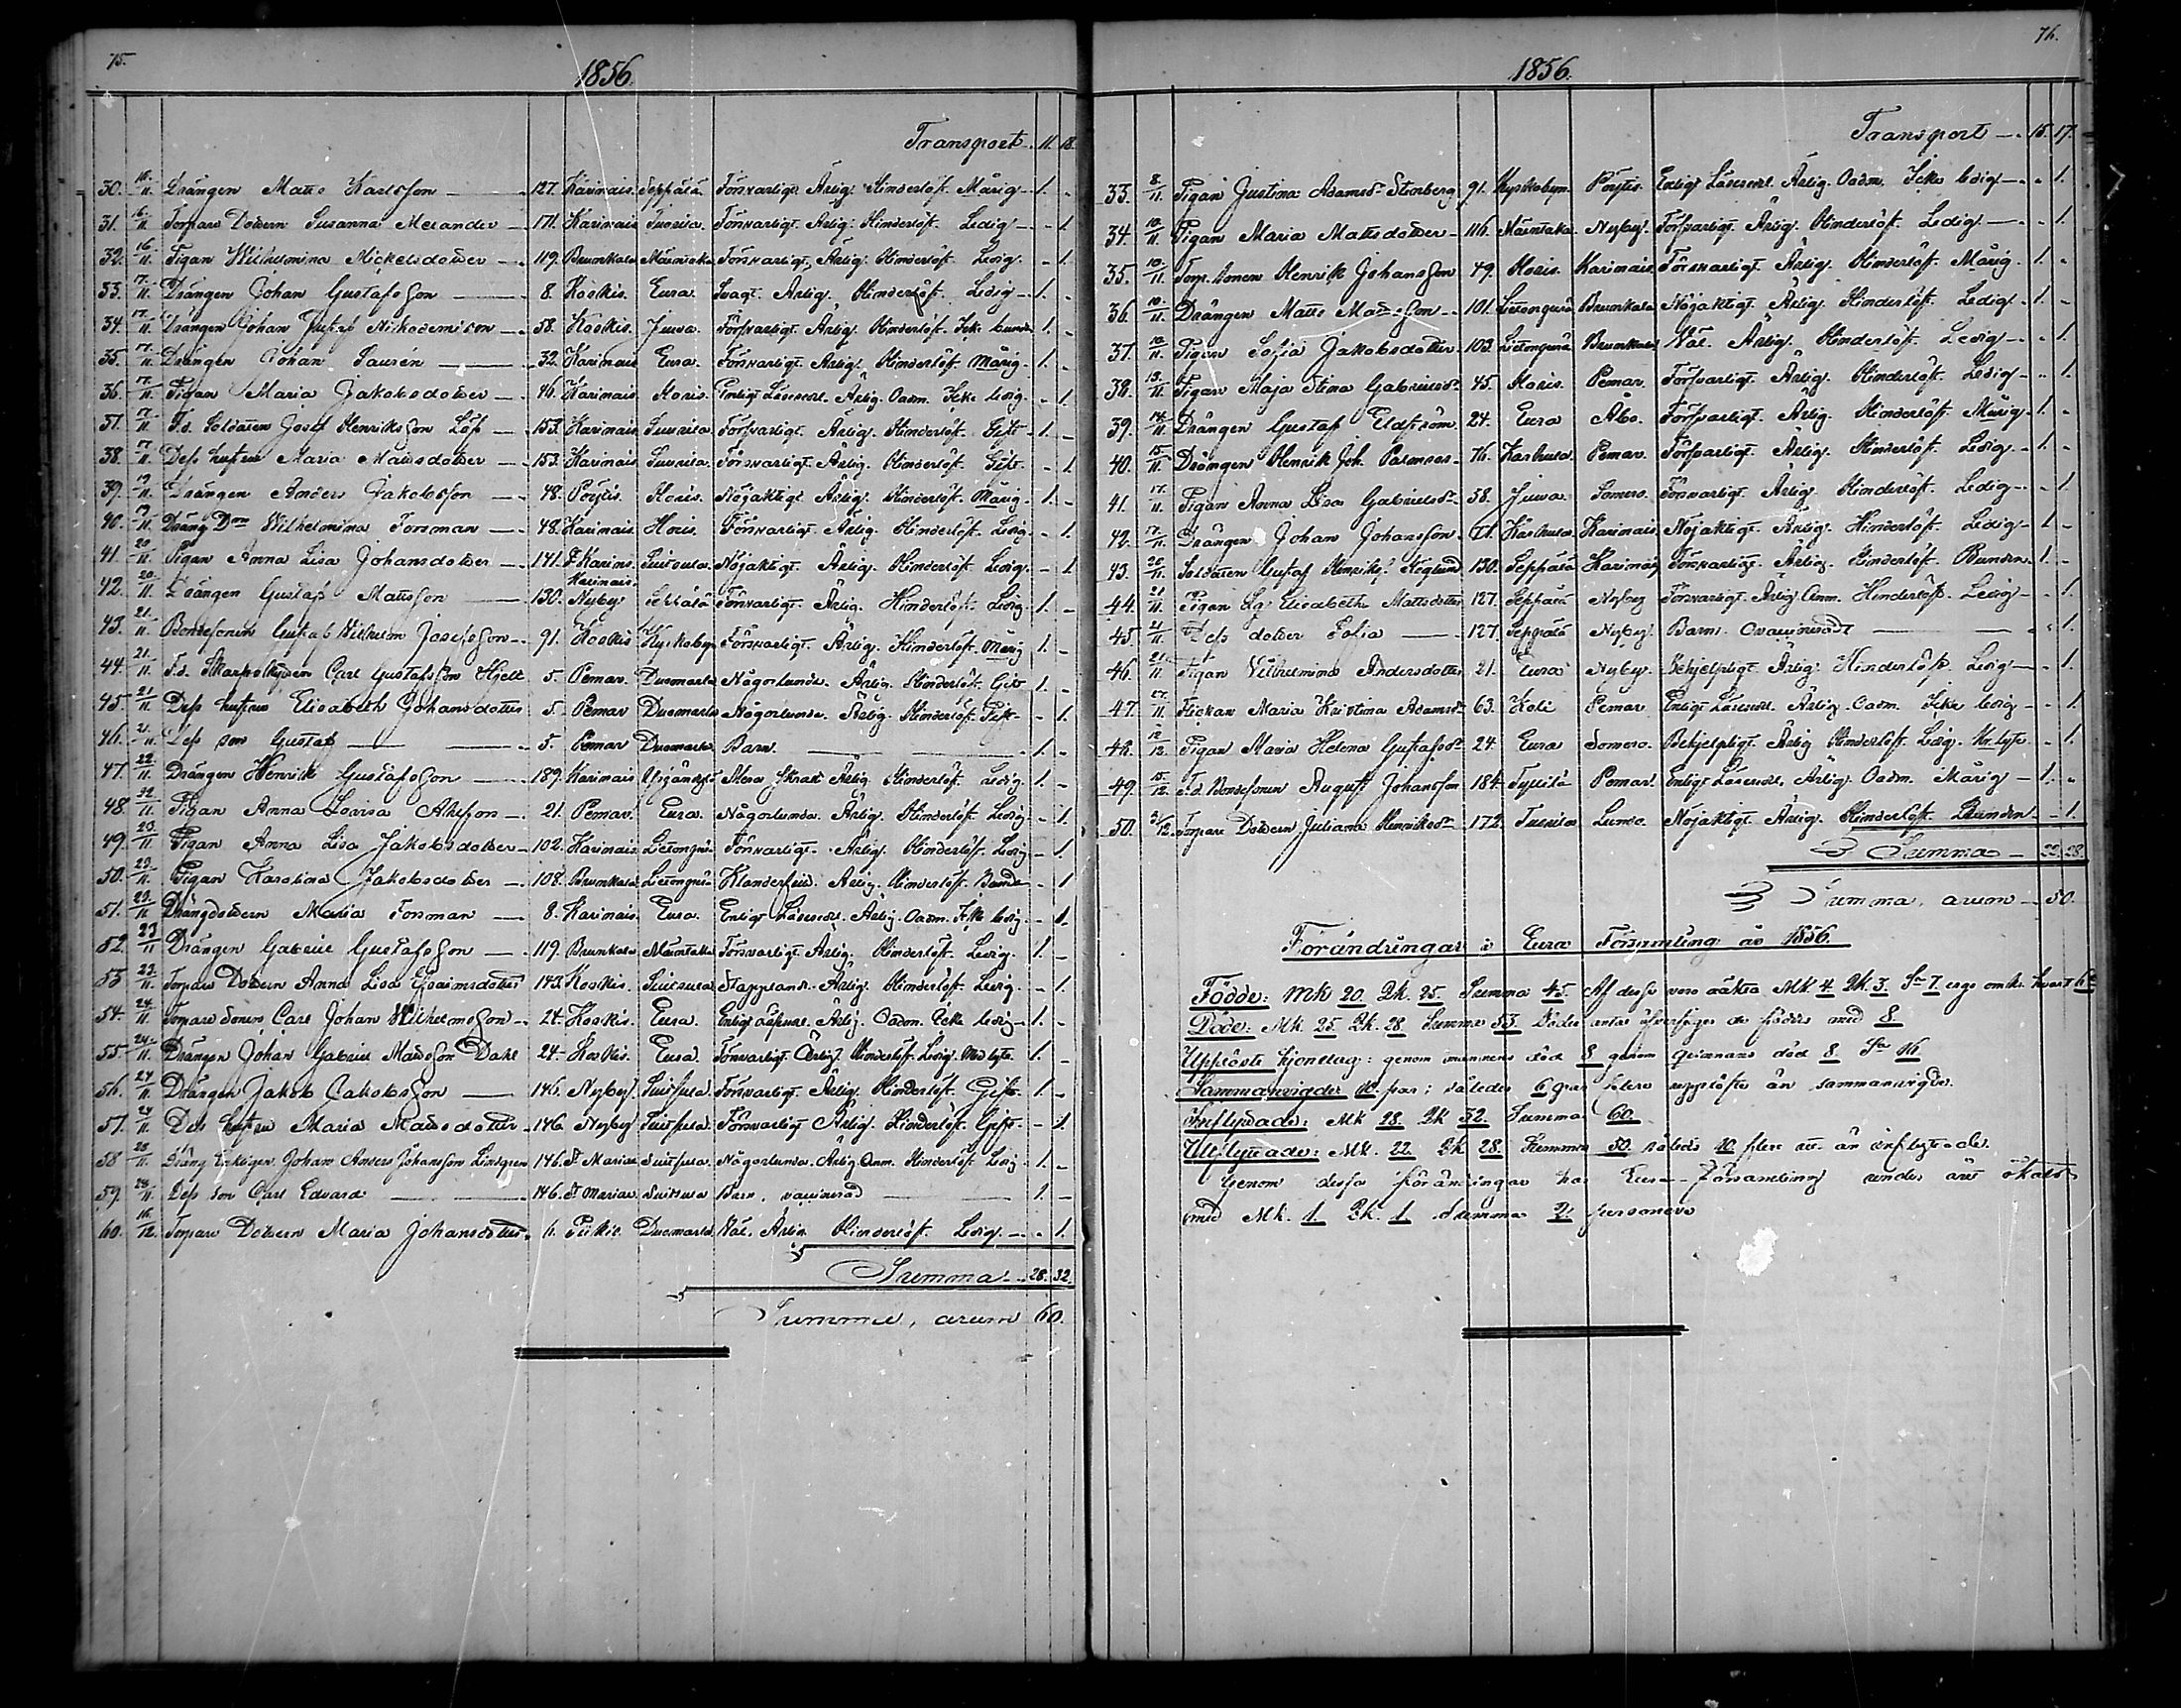 75.
1856.
Transport 11. 18.
30. 16/11. Drängen Matts Karlsson 127. Karinais. Seppälä Försvarligt. Ärlig. Hinderlöst. Mårig 1. -
31. 16/11. Torpare Dottern Susanna Melander 171. Karinais Tuorila. Försvarligt. Ärlig. Hinderlöst. Ledig - 1.
32. 16/11. Pigan Wilhelmina Mickelsdotter 119. Brunkala Mäentaka Försvarligt. Ärlig. Hinderlöst. Ledig. - 1.
33. 17/11. Drängen Johan Gustafsson 8. Koskis. Eura. Svagt. Ärlig. Hinderlöst. Ledig 1. -
34. 17/11. Drängen Johan Nikodemison 58. Koskis. Juva. Försvarligt. Ärlig. Hinderlöst. Icke bunden 1. -
35. 17/11. Drängen Johan Laurén 32. Karinais Eura. Försvarligt. Ärlig. Hinderlöst. Mårig. 1. -
36. 17/11. Pigan Maria Jakobsdotter 46. Karinais. Horis. Enligt Läsesedl. Ärlig. Oadm. Icke ledig. - 1.
37. 17/11. F.d. Soldaten Josef Henriksson Löf 153. Karinais Tuorila. Försvarligt. Ärlig. Hinderlöst. Gift 1. -
38. 17/11. Dess hustru Maria Mattsdotter 153. Karinais. Tuorila. Försvarligt. Ärlig. Hinderlöst. Gift. - 1
39. 19/11. Drängen Anders Jakobsson 48. Pöytis. Horis. Nöjaktigt. Ärlig. Hinderlöst. Mårig. 1. -
40. 19/11. Dräng Dtrn Wilhelmina Forsman 48. Karinais. Horis. Försvarligt. Ärlig. Hinderlöst. Ledig. - 1.
41. 20/11 Pigan Anna Lisa Johansdotter 141. Karinais. Suitsula. Nöjaktigt. Ärlig. Hinderlöst. Ledig. - 1
42. 20/11. Drängen Gustaf Mattsson 130. Karinais. Nyby Seppälä Försvarligt. Ärlig. Hinderlöst. Ledig. 1. -
43. 21/11. Bondesonen Gustaf Wilhelm Josefsson 91. Koskis Kyrkobyn Försvarligt. Ärlig. Hinderlöst. Mårig 1. -
44. 21/11. F.d. Carl Gustafsson Hjelt 5. Pemar. Duomarla Någorlunda. Ärlig. Hinderlöst. Gift 1. -
45. 21/11 Dess hustru Elisabeth Johansdotter 5. Pemar Duomarla Någorlunda. Ärlig. Hinderlöst. Gift - 1.
46. 21/11. Dess son Gustaf 5. Pemar Duomarla. Barn. 1. -
47. 22/11. Drängen Henrik Gustafsson 189. Karinais Ärlig. Hinderlöst. Ledig. 1. -
48. 22/11. Pigan Anna Lovisa 21. Pemar. Eura. Någorlunda. Ärlig. Hinderlöst. Ledig - 1.
49. 23/11 Pigan Anna Lisa Jakobsdotter 102. Karinais. Liedonperä Försvarligt. Ärlig. Hinderlöst. Ledig - 1.
50. 23/11. Pigan Karolina Jakobsdotter 108. Brunkala. Liedonperä Klanderfritt. Ärlig. Hinderlöst. Bunden - 1
51. 23/11 Drängdottern Maria Forsman 8. Karinais. Eura. Enligt Läsesedl. Ärlig. Oadm. Icke ledig. - 1.
52. 23/11 Drängen Gabriel Gustafsson 119. Brunkala Mäentaka Försvarligt. Ärlig. Hinderlöst. Ledig. 1. -
53 23/11. Torpare Dottern Anna Lisa Efraimsdotter 143. Koskis. Suitsula Ärlig. Hinderlöst. Ledig. - 1.
54. 24/11. Torpare Sonen Carl Johan Wilhelmsson 24. Koskis. Eura. Enligt Läsesedl. Ärlig. Oadm. Icke ledig 1. -
55 24/11. Drängen Johan Gabriel Mattsson Dahl 24. Koskis. Eura. Försvarligt. Ärligt. Hinderlöst. Ledig. Med lyte. 1. -
56. 24/11 Drängen Jakob Jakobsson 146. Nyby. Suitsula. Försvarligt. Ärlig. Hinderlöst. Gift. 1. -
57. 24/11 Dess hustru Maria Mattsdotter 146. Nyby Suitsula. Försvarligt. Ärlig. Hinderlöst. Gift. - 1
58 28/11. Dräng Enklingen Johan Anders Johansson Lindgren 146. St Mariae Suitsula. Någorlunda. Ärlig. Anm. Hinderlöst. Ledig. 1. -
59. 28/11. Dess son Carl Edvard 146. St Mariae Suitsula Barn, vaccinerad 1. -
60. 16/12. Torpare Dottern Maria Johansdotter 6. Piikis. Duomarla Väl. Ärlig. Hinderlöst. Ledig. - 1.
Summa 28. 32
Summa, arum 60.
76.
1856.
Transport 15. 17.
33. 8/11. Pigan Justina Adamsdr Stenberg 91. Kyrkobyn. Pöytis. Enligt Läsesedl. Ärlig. Oadm. Icke ledig - 1.
34. 10/11. Pigan Maria Mattsdotter 116. Mäentaka. Nyby. Försvarligt. Ärlig. Hinderlöst. Ledig. - 1.
35. 10/11. Torp. Sonen Henrik Johansson 49. Horis. Karinais. Försvarligt. Ärlig. Hinderlöst. Mårig. 1. -
36. 10/11. Drängen Matts Mattsson 101. Liedonperä Brunkala Nöjaktigt. Ärlig. Hinderlöst. Ledig. 1. -
37. 10/11. Pigan Sofia Jakobsdotter 103. Liedonperä Brunkala Väl. Ärlig. Hinderlöst. Ledig - 1.
38. 13/11. Pigan Maja Stina Gabrielsdr 45. Horis. Pemar. Försvarligt. Ärlig. Hinderlöst. Ledig - 1.
39. 14/11. Drängen Gustaf Eldström 24. Eura Åbo. Försvarligt. Ärlig. Hinderlöst. Mårig 1. -
40. 15/11. Drängen Henrik Joh. Palmroos 76. Karhula. Pemar. Försvarligt. Ärlig. Hinderlöst. Ledig. 1. -
41. 17/11. Pigan Anna Lisa Gabrielsdr 58. Juva. Somero. Försvarligt. Ärlig. Hinderlöst. Ledig - 1.
42. 17/11. Drängen Johan Johansson 71. Karhula. Karinais. Nöjaktigt. Ärlig. Hinderlöst. Ledig 1. -
43. 20/11. Soldaten Gustaf Henriks. Heglund 130. Seppälä Karinais Försvarligt. Ärlig. Hinderlöst. Bunden. 1. -
44. 21/11. Pigan Elisabeth Mattsdotter 127. Seppälä Nyby Försvarligt. Ärlig. Anm. Hinderlöst. Ledig - 1.
45. 21/11. Dess dotter Sofia 127. Seppälä Nyby. Barn. Ovaccineradt - 1.
46. 21/11. Pigan Vilhelmina Andersdotter 21. Eura Nyby. Behjelpligt. Ärlig. Hinderlöst. Ledig - 1.
47. 17/11. Flickan Maria Kristina Adamsdr 63. Koli Pemar. Enligt Läsesedl. Ärlig. Oadm. Icke ledig - 1.
48. 12/12. Pigan Maria Helena Gustafsdr 24. Eura Somero. Behjelpligt. Ärlig. Hinderlöst. Ledig. lyte. - 1.
49. 15/12. F.d. Bondesonen August Johansson 184. Pemar. Enligt Läsesedl. Ärlig. Oadm. Mårig 1. -
50. 31/12. Torpare Dottern Juliana Henriksdr 172. Tuorila Lundo. Nöjaktigt. Ärlig. Hinderlöst. Bunden - 1.
Summa 22. 28.
Summa, arum 50.
Förändringar i Eura Församling år 1856.
Födde: Mk 20. Qk. 25. Summa 45. Af dessa voro oäkta Mk 4. Qk. 3. Sa 7. ergo omkr. hvart 6te
Döde: Mk. 25. Qk. 28. Summa 53. Dödes antal öfverstiger de föddes med 8.
Upplöste hjonelag: genom mannens död 8. genom qvinnans död 8. Sa 16
Sammanvigde: 10. par; således 6 par flera upplöste än sammanvigde.
Inflyttade: Mk 28. Qk 32. Summa 60.
Utflyttade: Mk. 22. Qk 28. Summa 50. således 10. flere in än utflyttade.
Genom dessa förändringar har Eura Församling under året ökats
med Mk. 1. Qk. 1. Summa 2. personer